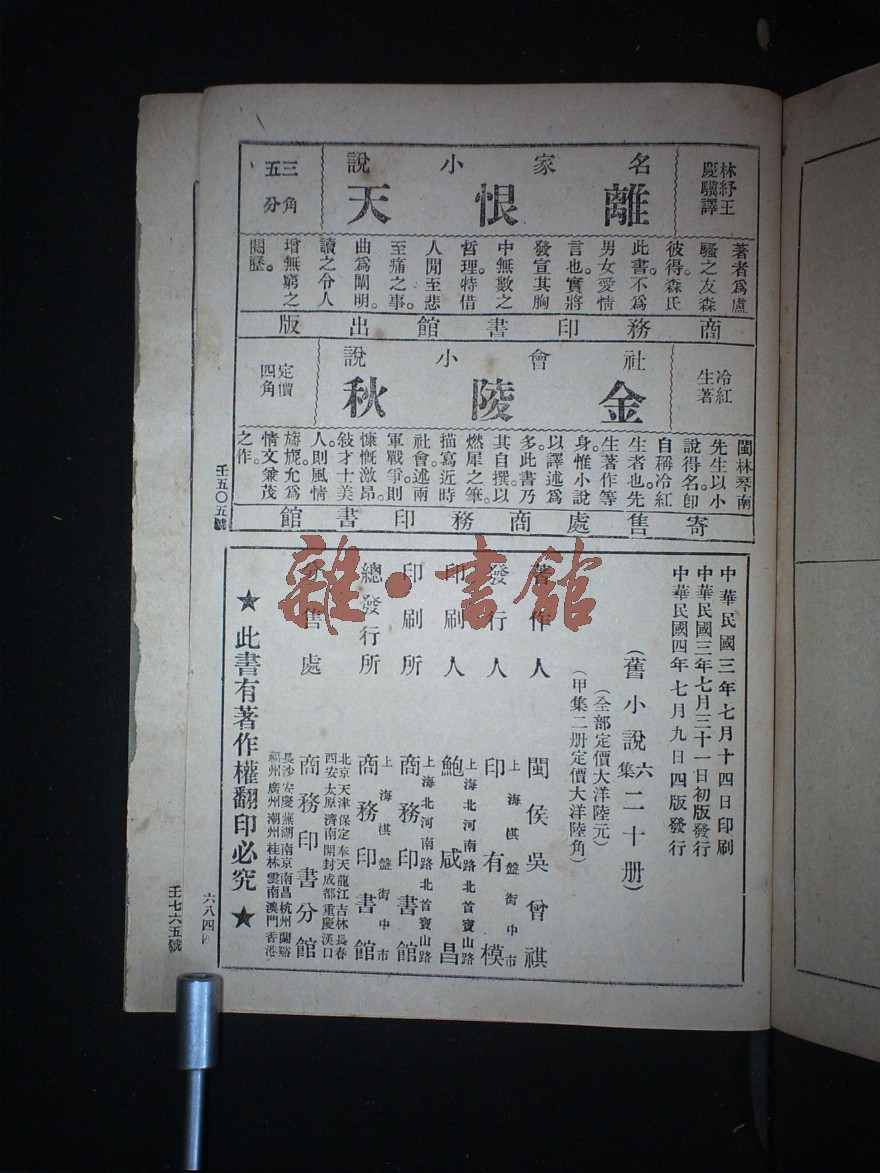 林紓王
慶驥譯
名家小說
離恨天
三角
五分
著者爲盧
騷之友森
彼得森氏
此書不爲
男女愛情
言也實將
發宣其胸
中無數之
哲理特借
人間至悲
至痛之事
曲爲闡明
讀之令人
增無窮之
閱歷。
商務印書館出版
冷紅
生著
社會小說
金陵秋
定價
四角
閩林琴南
先生以小
說得名。卽
自稱冷紅
生者也。先
生著作等
身。惟小說
以譯述爲
多。此書乃
其自撰。以
燃犀之筆。
描寫近時
社會。述兩
軍戰爭。則
慷慨激昂。
敍才士美
人。則風情
旖旎。允爲
情文兼茂
之作。
寄售處商務印書館
壬五〇五號
中華民國三年七月十四日印刷
中華民國三年七月三十一日初版發行
中華民國四年七月九日四版發行
(舊小說六集二十册)
(全部定價大洋陸元)
(甲集二册定價大洋陸角)
著作人 閩侯吳曾祺
發行人 印有模
上海棋盤街中市
印刷人 鮑咸昌
上海北河南路北首寶山路
印刷所 商務印書館
上海北河南路北首寶山路
總發行所 商務印書館
上海棋盤街中市
分售處 商務印書分館
北京天津保定奉天龍江吉林長春
西安太原濟南開封成都重慶漢口
長沙安慶蕪湖南京南昌杭州蘭谿
福州廣州潮州桂林雲南澳門香港
★此書有著作權翻印必究★
六八四四
壬七六五號
雜·書館